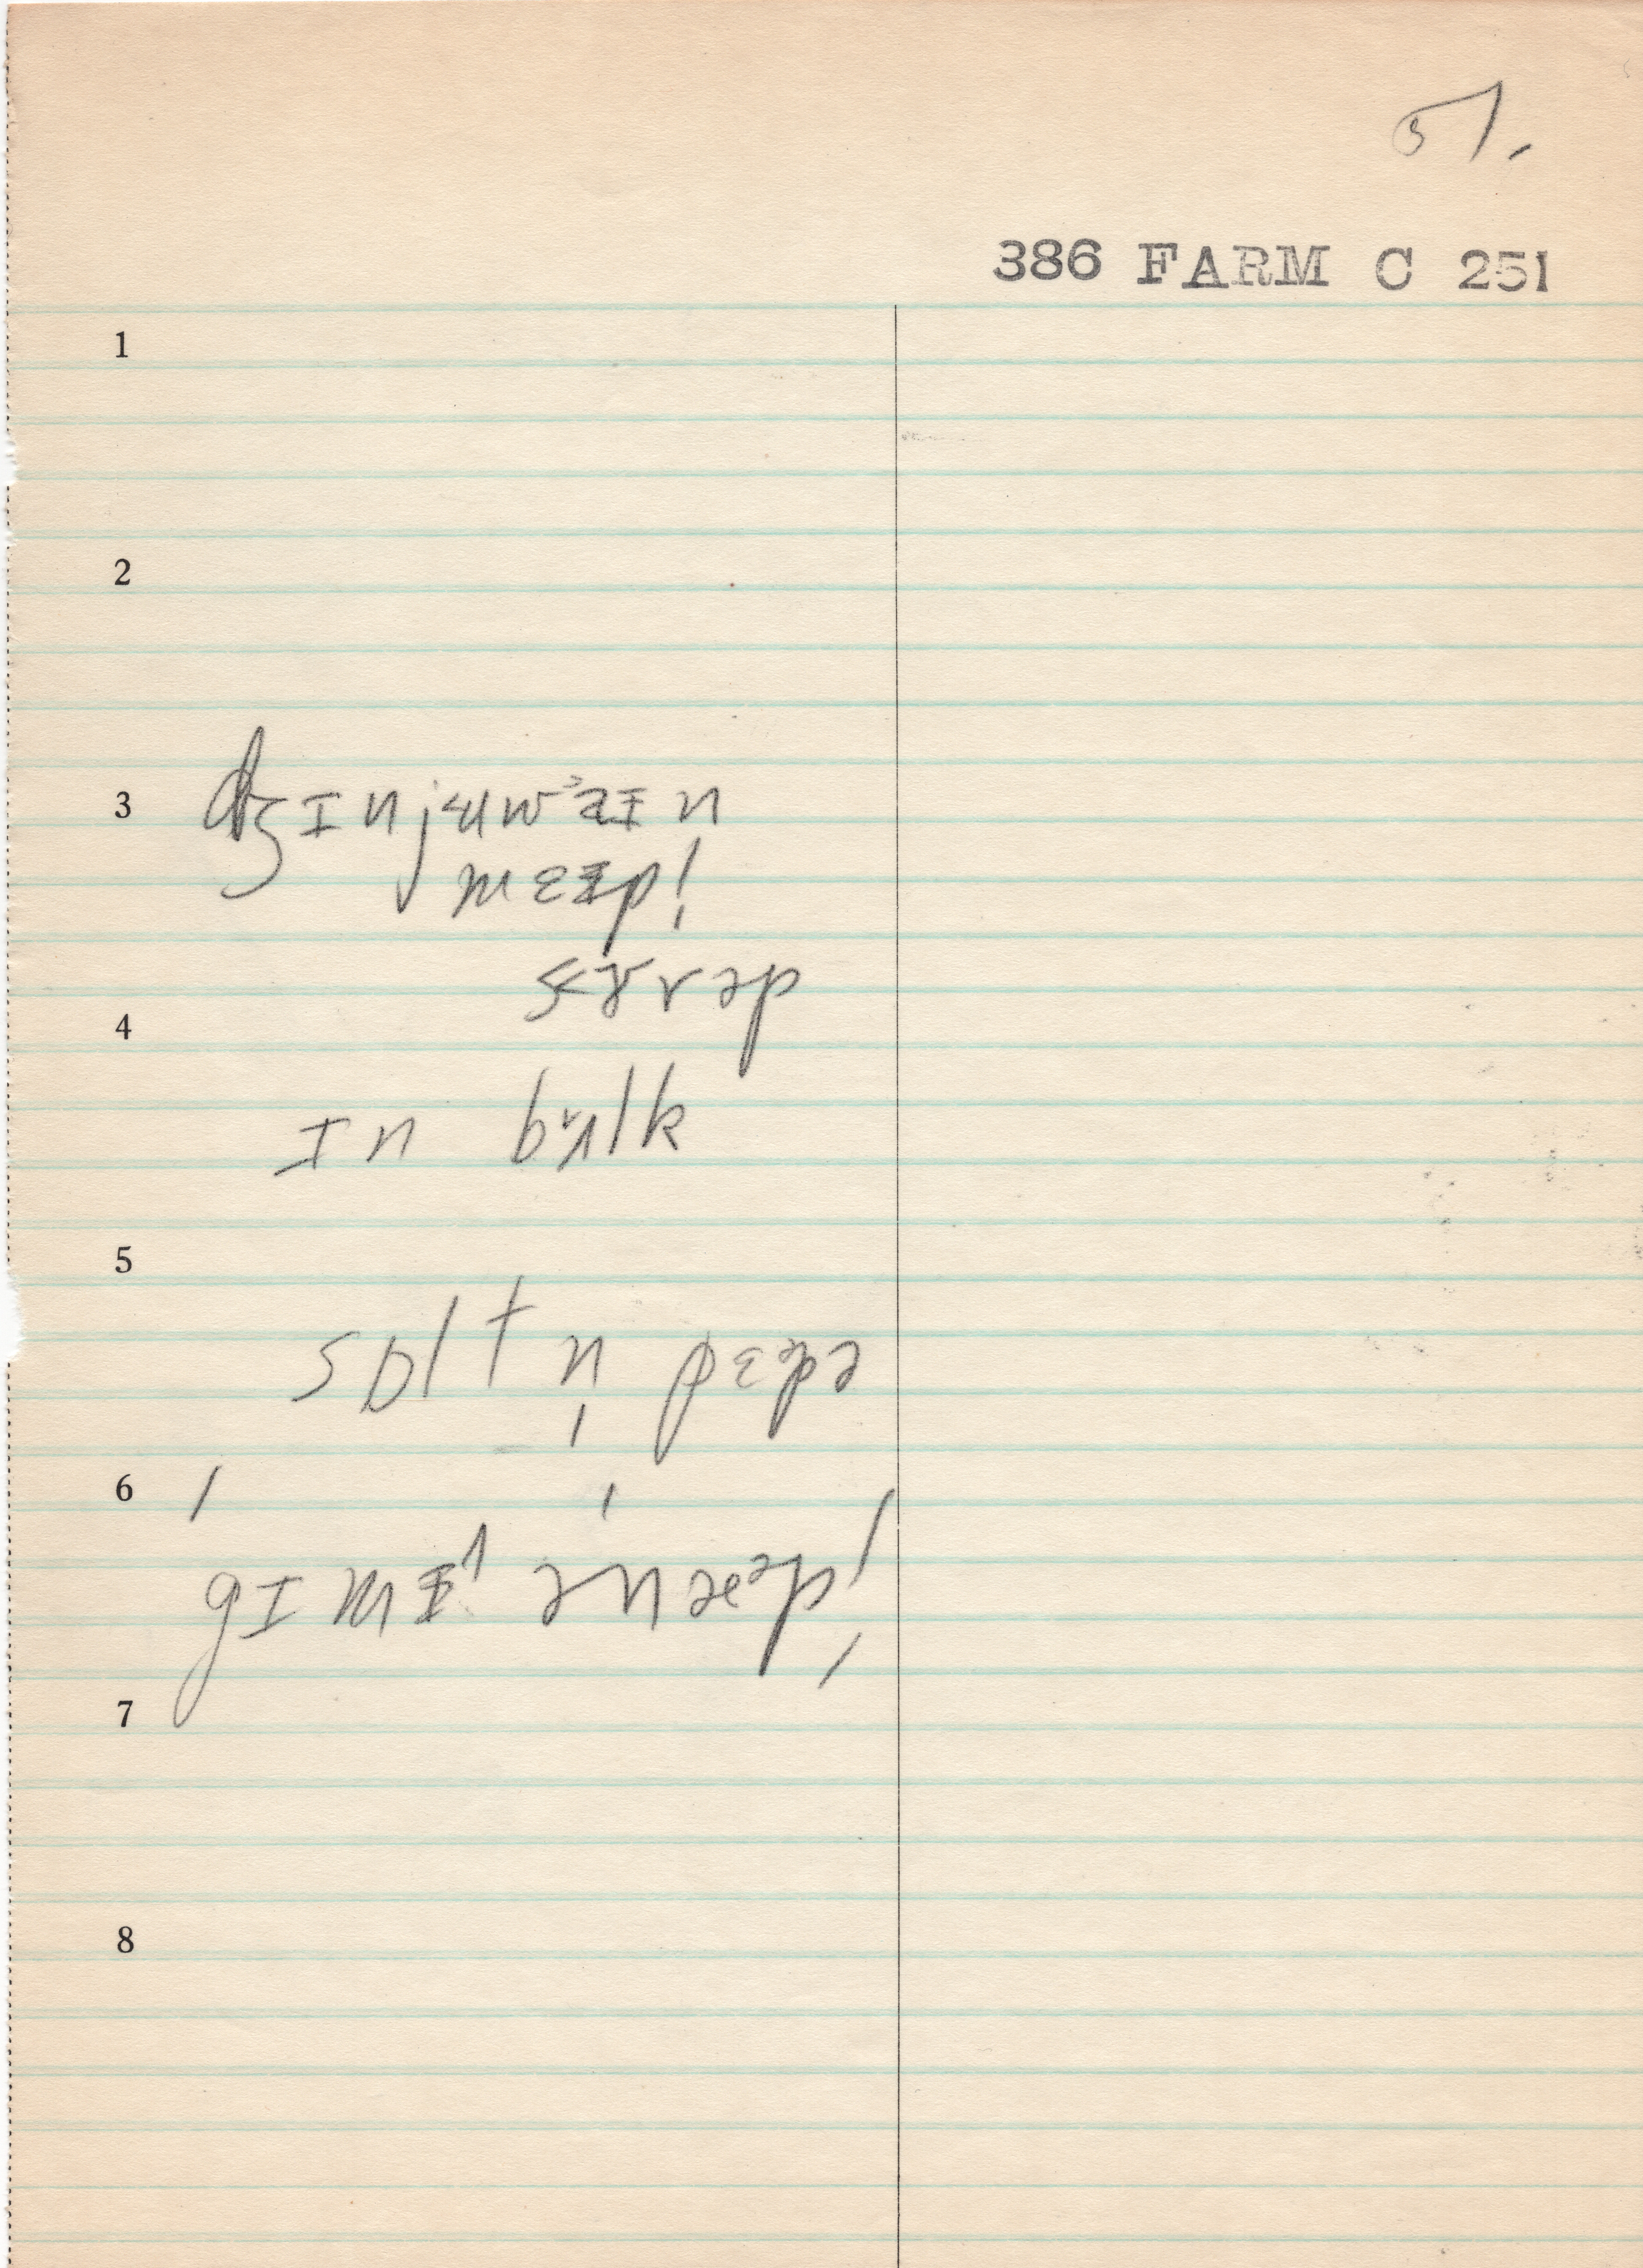 51.
386 FARM C 251
1
2
3 dʒɪnjʉwᵊaɪn
meɪpl̩
sɤrəp
4
ɪn bʌlk
5
sɒlt n̩ pɛpə
6
gɪmɪ ənæpl̩
7
8